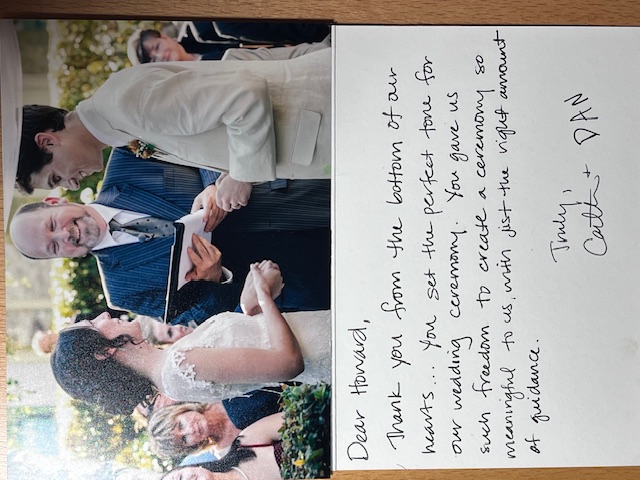 Dear Howard,
Thank you from the bottom of our
hearts... You set the perfect tone for
our wedding ceremony. You gave us
such freedom to create a ceremony so
meaningful to us, with just the right amount
of guidance.
Truly,
+ DAN